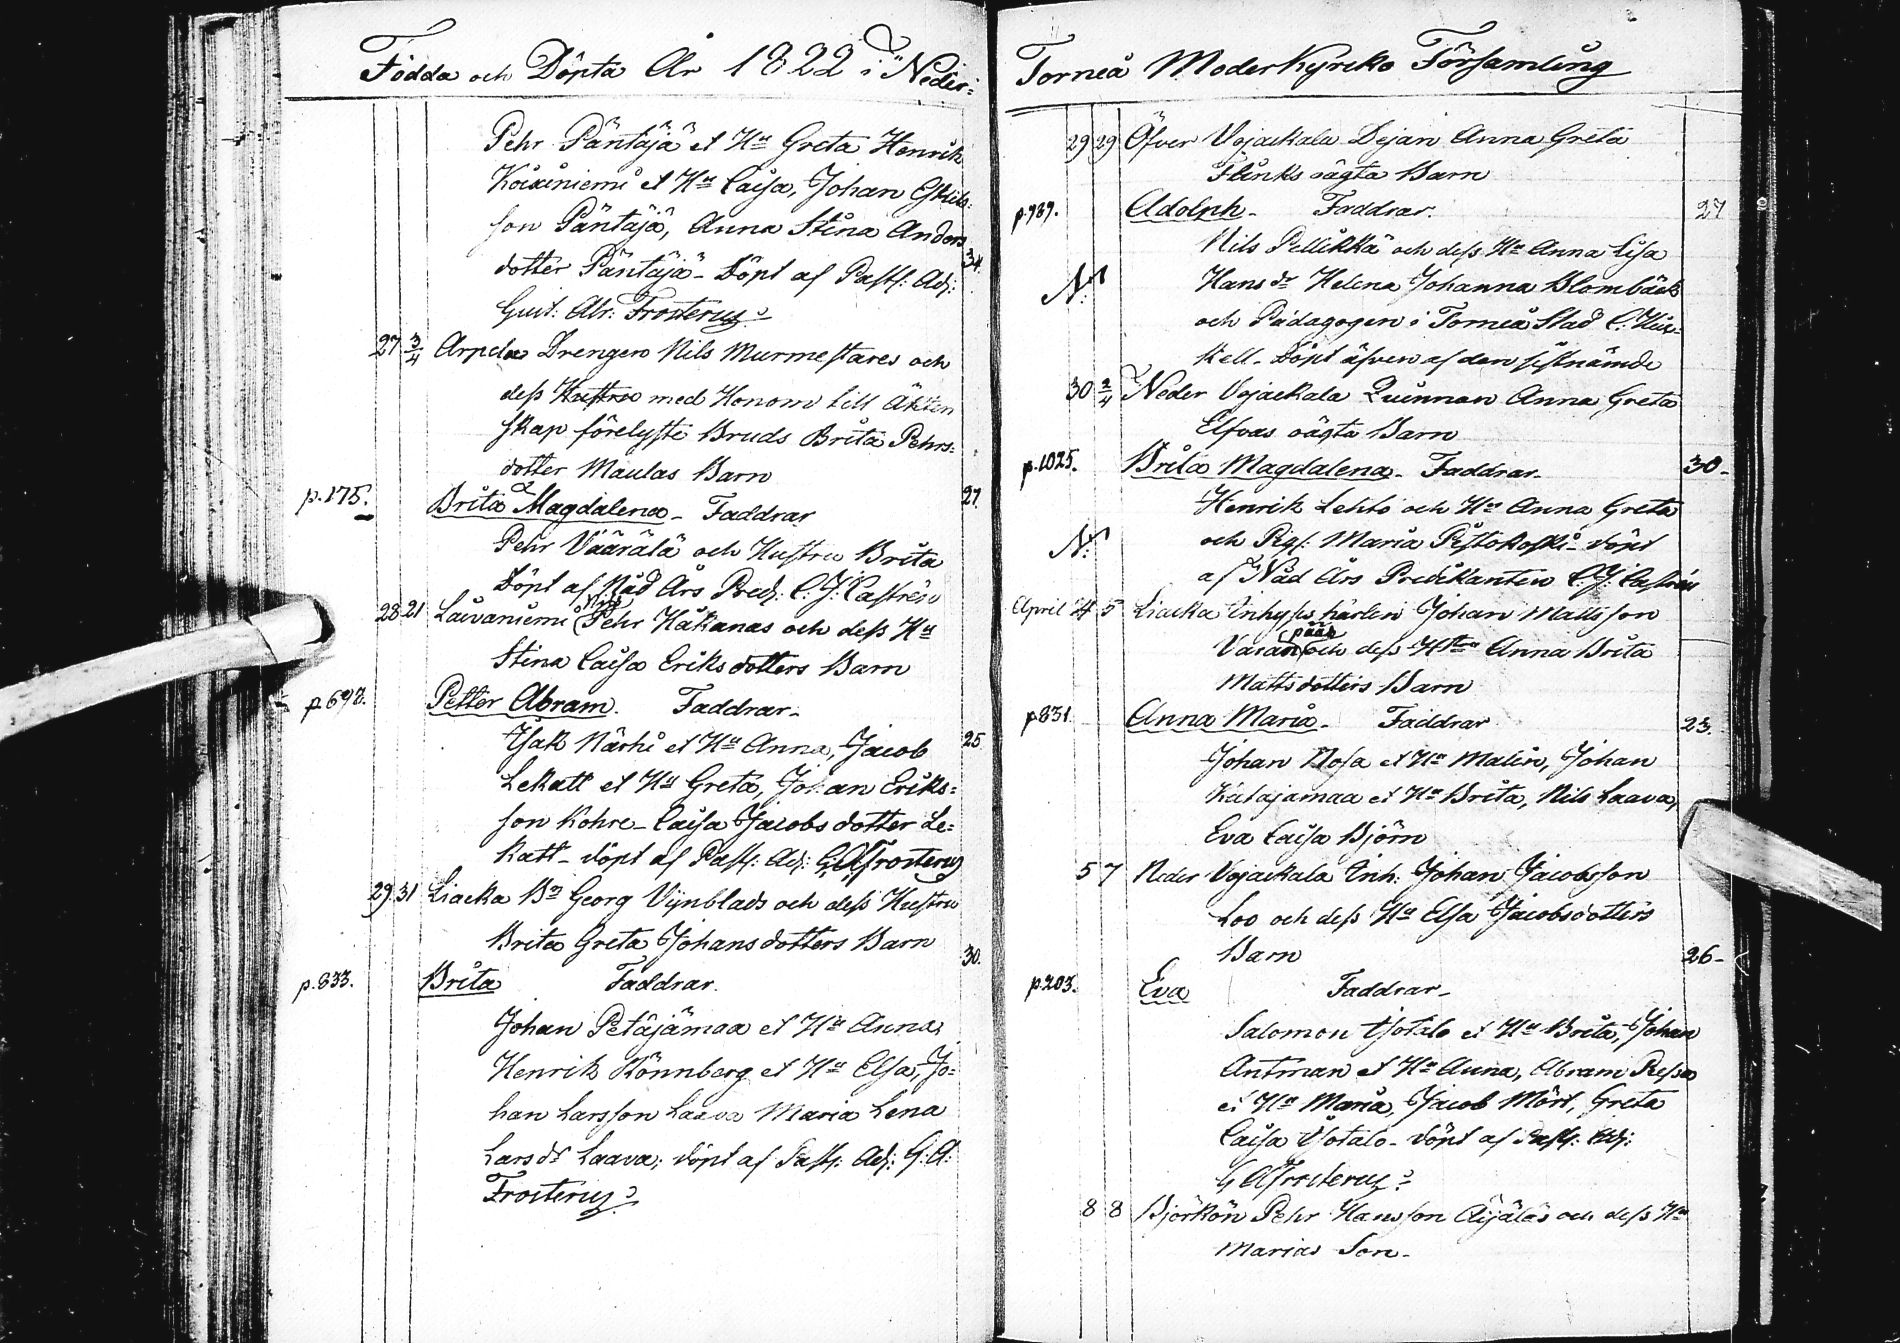 Födda och Döpta År 1822 i Neder-
Pehr Päntäjä et Hu Greta Henrik
Koiviniemi et Hu Caisa, Johan Eskils-
son Päntäjä, Anna Stina Anders
dotter Päntäjä - Döpt af Past: Adj:
34.
Gust: Abr: Frosterus
27 3/4 Arpela Drengen Nils Murmestares och
dess Hustru med Honom till Äkten
skap förelyste Bruds Brita Pehrs-
dotter Maulas Barn
p.175. Brita Magdalena - Faddrar 27.
Pehr Väärälä och Hustru Brita
Döpt af Nåd Års Pred: C. J. Castrén
28 21 Laivaniemi Pehr Håkanas och dess Hu
Stina Caisa Eriksdotters Barn
p.698. Petter Abram. Faddrar -
Isak Närhi et Hu Anna, Jacob 25
Lekatt et Hu Greta, Johan Eriks-
son Kohre - Caisa Jacobsdotter Le-
katt - döpt af Past: Adj: G. A. Frosterus
29 31 Liacka Bn Georg Vijnblads och dess Hustru
Brita Greta Johansdotters Barn
30.
p.833. Brita Faddrar.
Johan Petäjämaa et Hu Anna,
Henrik Rönnberg et Hu Elsa, Jo-
han Larsson Laava Maria Lena
Larsdr Laava; döpt af Past: Adj: G: A:
Frosterus
Torneå Moderkyrko Församling
29 29 Öfver Vojackala Dejan Anna Greta
Flinks oägta Barn
p.989. Adolph - Faddrar. 27
Nils Pellikka och dess Hu Anna Lisa
N: Hansdr Helena Johanna Blombäck
och Pädagogen i Torneå Stad C. Heik-
kell - Döpt äfven af den sistnämde
30 2/4 Neder Vojackala Quinnan Anna Greta
Elfvas oägta Barn
p.1025. Brita Magdalena - Faddrar - 30 -
Henrik Lehto och Hu Anna Greta
N: och Pig: Maria Pistokoski - döpt
af Nåd Års Predikanten C. J. Castrén
April 4 5 Liacka Inhyses karlen Johan Mattsson
pää
Varan och dess Hu Anna Brita
Mattsdotters Barn
p.831. Anna Maria - Faddrar 23.
Johan Nosa et Hu Malin, Johan
Katajamaa et Hu Brita, Nils Laava,
Eva Caisa Björn
5 7 Neder Vojackala Inh: Johan Jacobsson
Loo och dess Hu Elsa Jacobsdotters
Barn 26 -
p.203. Eva Faddrar -
Salomon Isotalo et Hu Brita, Johan
Antman et Hu Anna, Abram Ressa
et Hu Maria, Jacob Mört, Greta
Caisa Isotalo - döpt af Past: Adj:
G A Frosterus
8 8 Björkön Pehr Hansson Äijäläs och dess Hu
Marias Son -